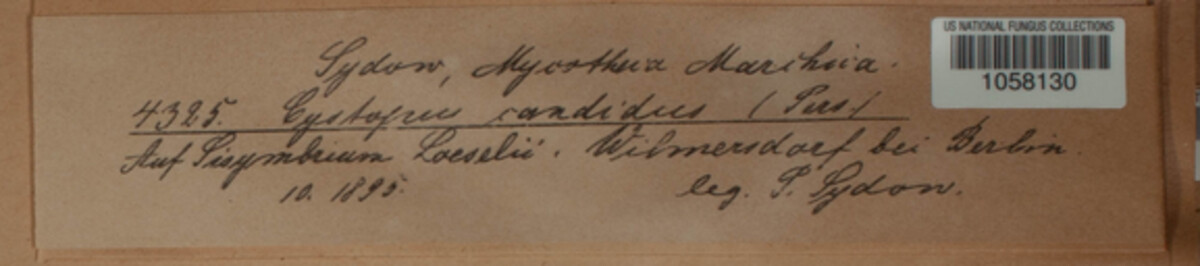 US NATIONAL FUNGUS COLLECTIONS
1058130
Sydow, Mycotheca Marchica.
4325. Cystopus candidus (Pers.)
Auf Sisymbrium Loeselii. Wilmersdorf bei Berlin.
10. 1895. leg. P. Sydow.